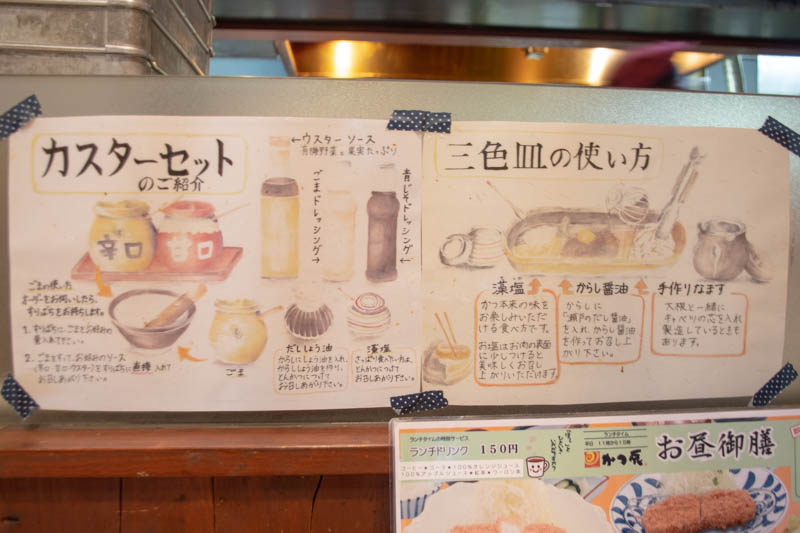 カスターセット
のご紹介
←ウスターソース
有機野菜と果実たっぷり
ごまドレッシング→
青じそドレッシング←
辛口
甘口
ごまの使い方
オーダーをお伺いしたら、
すりばちをお持ちします。
1. すりばちにごまとお好みの
量入れて下さい。
2. ごまをすって、お好みのソース
(辛口・甘口・ウスター)をすりばちに直接入れて
お召しあがり下さい。
ごま
だししょう油
からしにしょう油を入れ、
からしじょう油を作り、
とんかつにつけて
お召しあがり下さい。
藻塩
さっぱり食べたい方は、
とんかつにつけて
お召しあがり下さい。
三色皿の使い方
藻塩
かつ本来の味を
お楽しみいただ
ける食べ方です。
お塩はお肉の表面
に少しつけると
美味しくお召し
上がりいただけます。
からし醤油
からしに
「瀬戸のだし醤油」
を入れ、からし醤油
を作ってお召し上
がり下さい。
手作りなます
大根と一緒に
キャベツの芯を入れ
製造しているときも
あります。
ランチタイムの特別サービス
ランチドリンク 150円
コーヒー★コーラ★100%オレンジジュース
100%アップルジュース★紅茶★ウーロン茶
ランチタイム
平日 11時から15時
お昼御膳